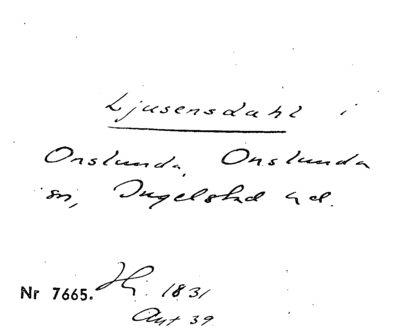 Ljusensdahl i
Onslunda, Onslunda
sn, Ingelstad hd.
Nr 7665. Hj. 1831
Ant 39